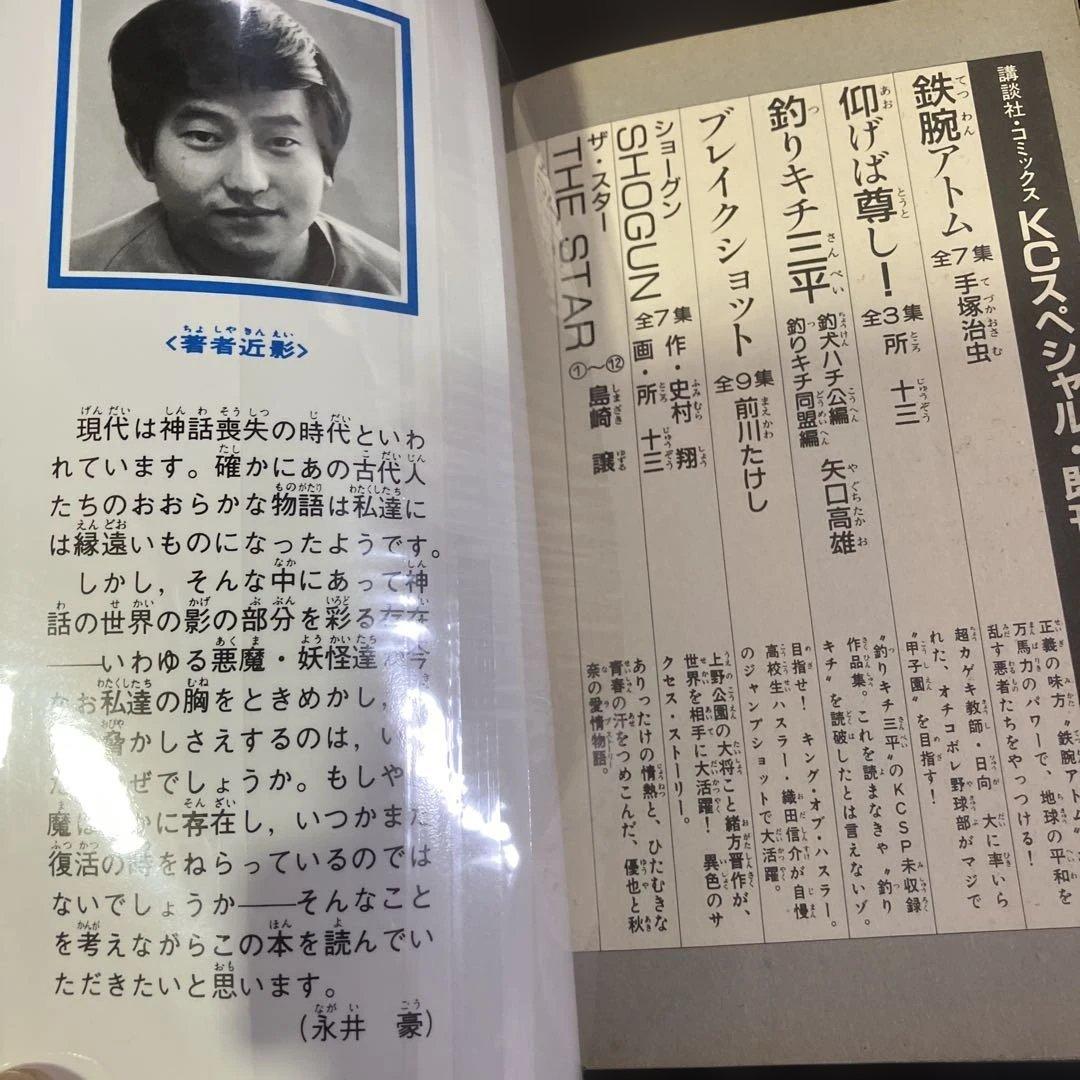 〈著者近影〉
現代は神話喪失の時代といわ
れています。確かにあの古代人
たちのおおらかな物語は私達に
は縁遠いものになったようです。
しかし，そんな中にあって神
話の世界の影の部分を彩る存在
――いわゆる悪魔・妖怪達 今
なお私達の胸をときめかし，
脅かしさえするのは，い
ぜでしょうか。もしや
魔は かに存在し，いつかまた
復活の時をねらっているのでは
ないでしょうか――そんなこと
を考えながらこの本を読んでい
ただきたいと思います。
（永井 豪）
講談社・コミックス KCスペシャル・既
鉄腕アトム 全7集 手塚治虫
正義の味方〝鉄腕アトム〟
万馬力のパワーで、地球の平和を
乱す悪者たちをやっつける！
仰げば尊し！ 全3集 所 十三
超カゲキ教師・日向 大に率いら
れた、オチコボレ野球部がマジで
〝甲子園〟を目指す！
釣りキチ三平 釣犬ハチ公編 釣りキチ同盟編 矢口高雄
〝釣りキチ三平〟のKCSP未収録
作品集。これを読まなきゃ〝釣り
キチ〟を読破したとは言えないゾ。
ブレイクショット 全9集 前川たけし
目指せ！ キング・オブ・ハスラー。
高校生ハスラー・織田信介が自慢
のジャンプショットで大活躍。
ショーグン
SHOGUN 全7集 作・史村 翔 画・所 十三
上野公園の大将こと緒方晋作が、
世界を相手に大活躍！ 異色のサ
クセス・ストーリー。
ザ・スター
THE STAR ①〜⑫ 島崎 譲
ありったけの情熱と、ひたむきな
青春の汗をつめこんだ、優也と秋
奈の愛情物語。